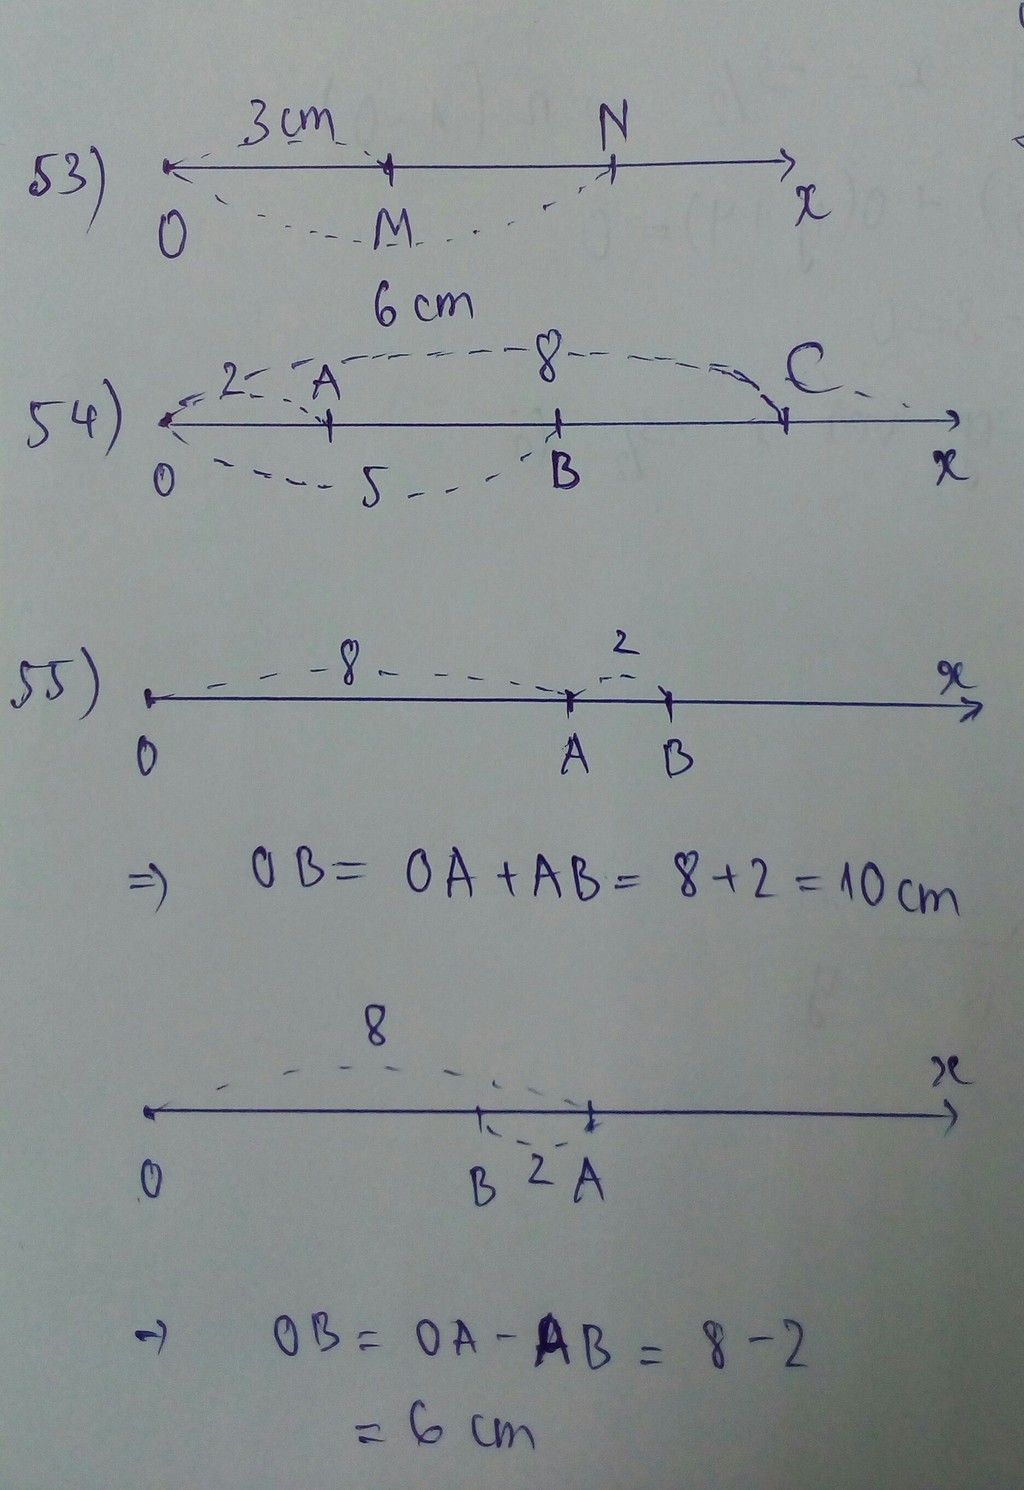 53) 3 cm N
O M x
6 cm
54) 2 A 8 C
O 5 B x
55) 8 2 x
O A B
=> OB = OA + AB = 8 + 2 = 10 cm
8
x
O B 2 A
=> OB = OA - AB = 8 - 2
= 6 cm